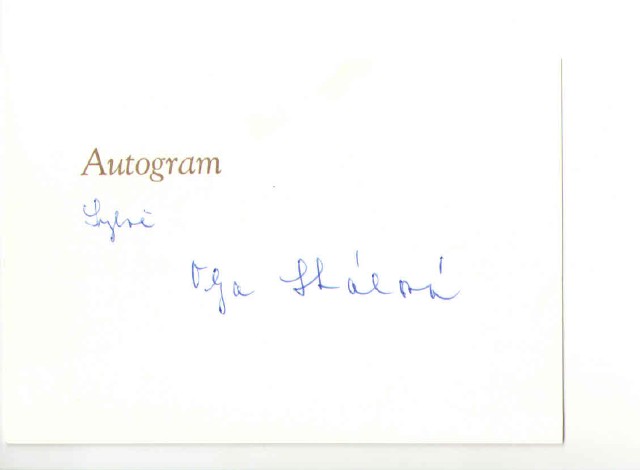 Autogram
Sylvě
Olga Skálová